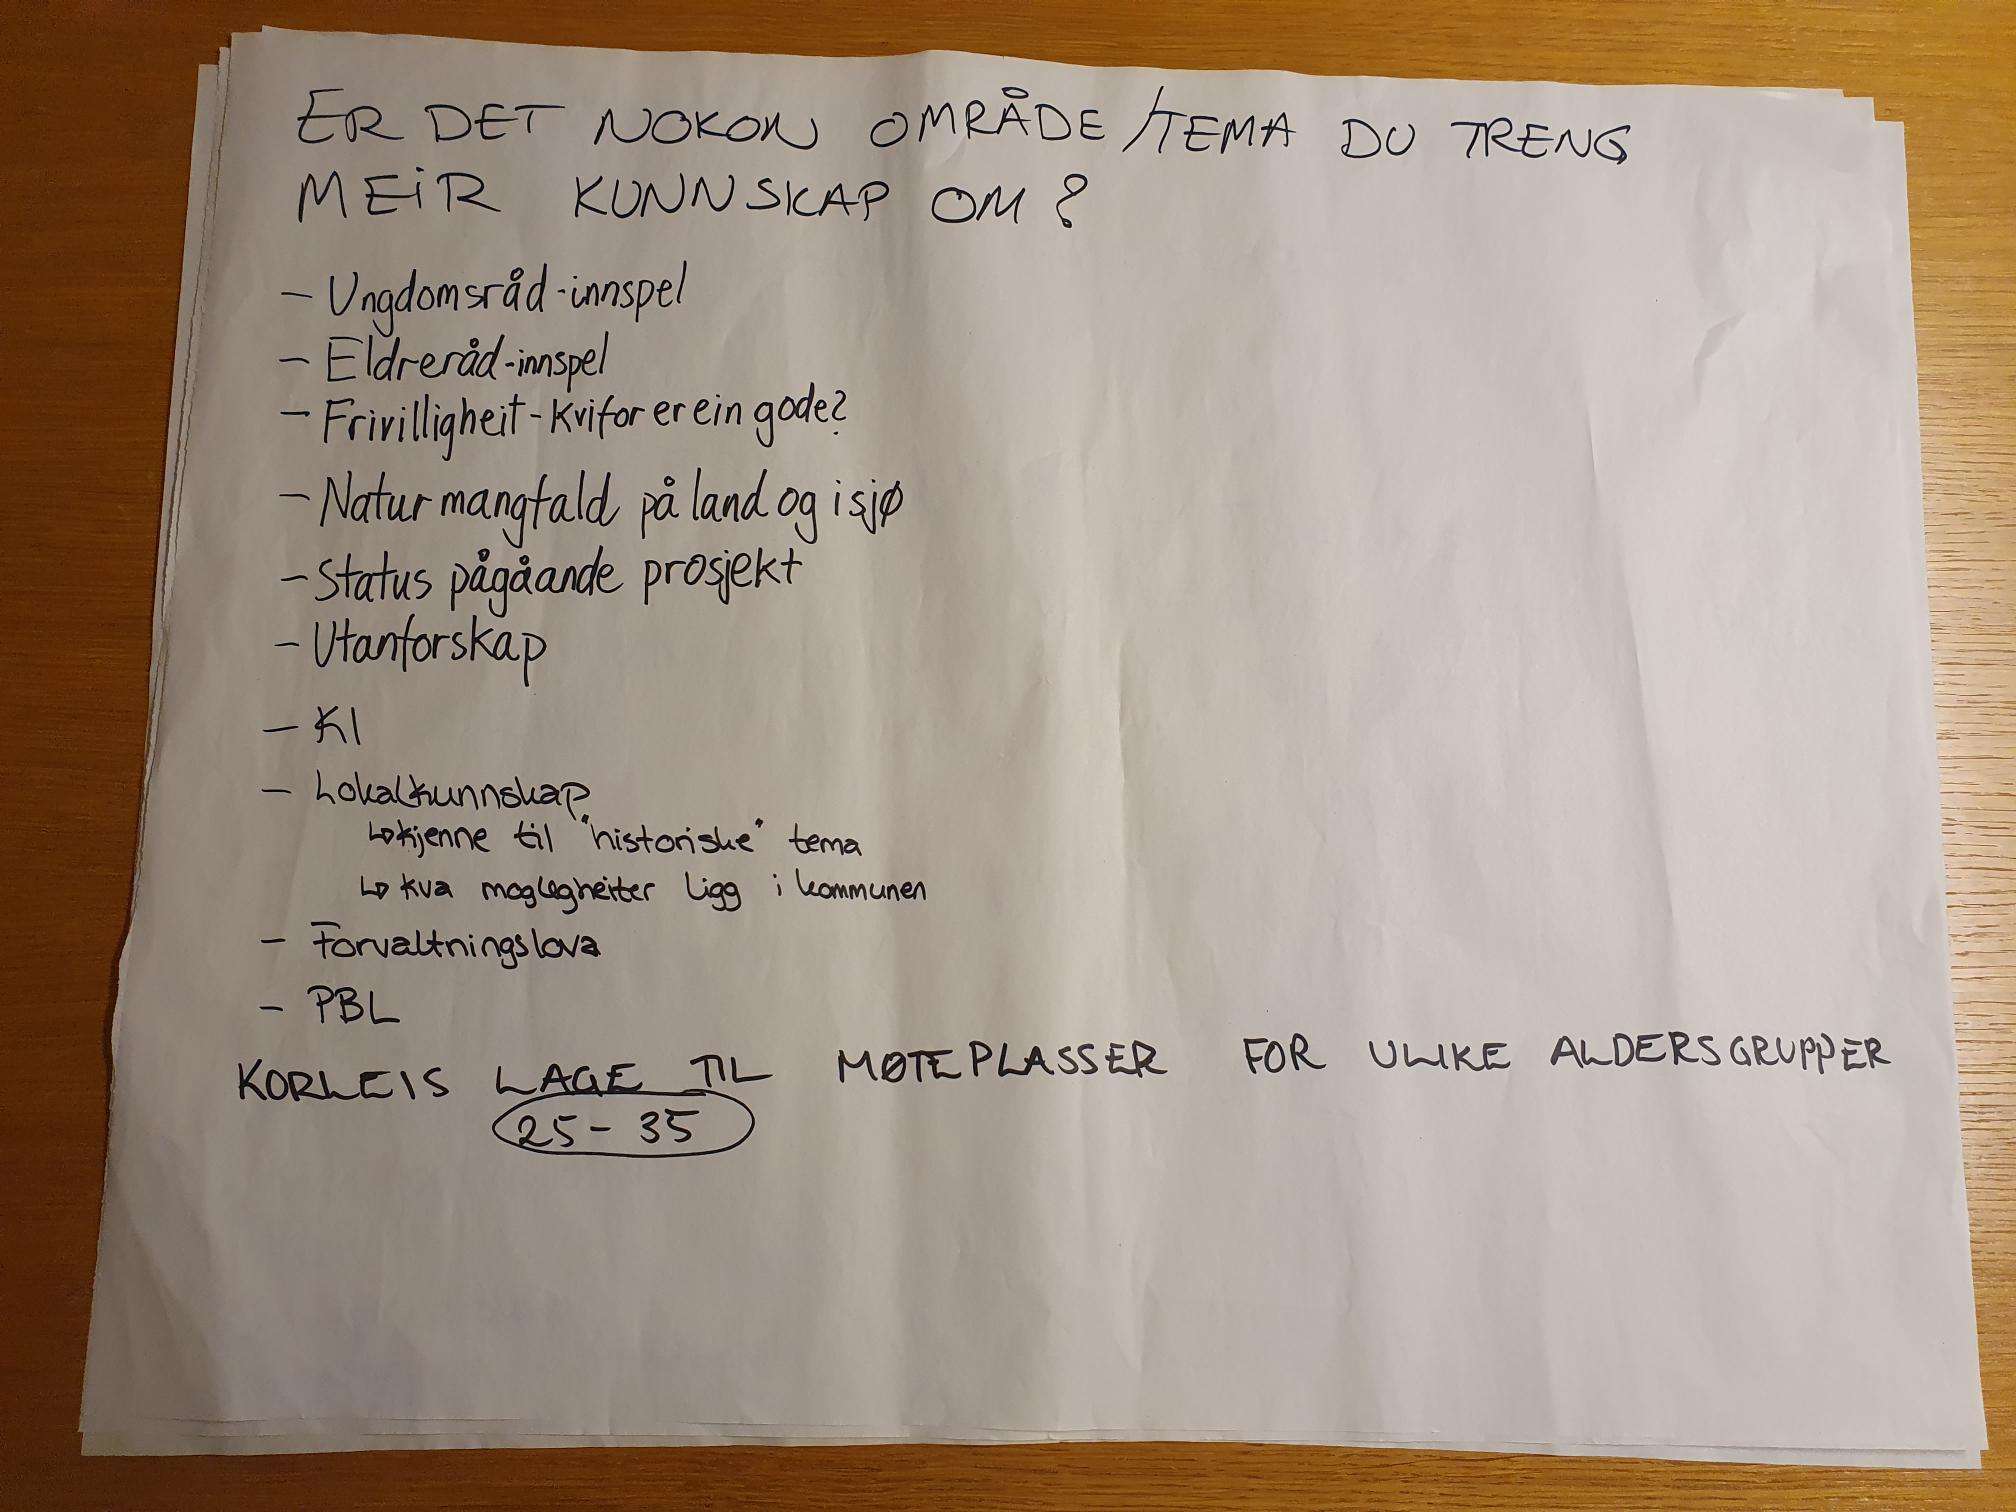 ER DET NOKON OMRÅDE/TEMA DU TRENG
MEIR KUNNSKAP OM?
- Ungdomsråd-innspel
- Eldreråd-innspel
- Frivilligheit - Kvifor er ein gode?
- Naturmangfald på land og i sjø
- Status pågåande prosjekt
- Utanforskap
- KI
- Lokalkunnskap
↳ kjenne til "historiske" tema
↳ kva moglegheiter ligg i kommunen
- Forvaltningslova
- PBL
KORLEIS LAGE TIL MØTEPLASSER FOR ULIKE ALDERSGRUPPER
25-35